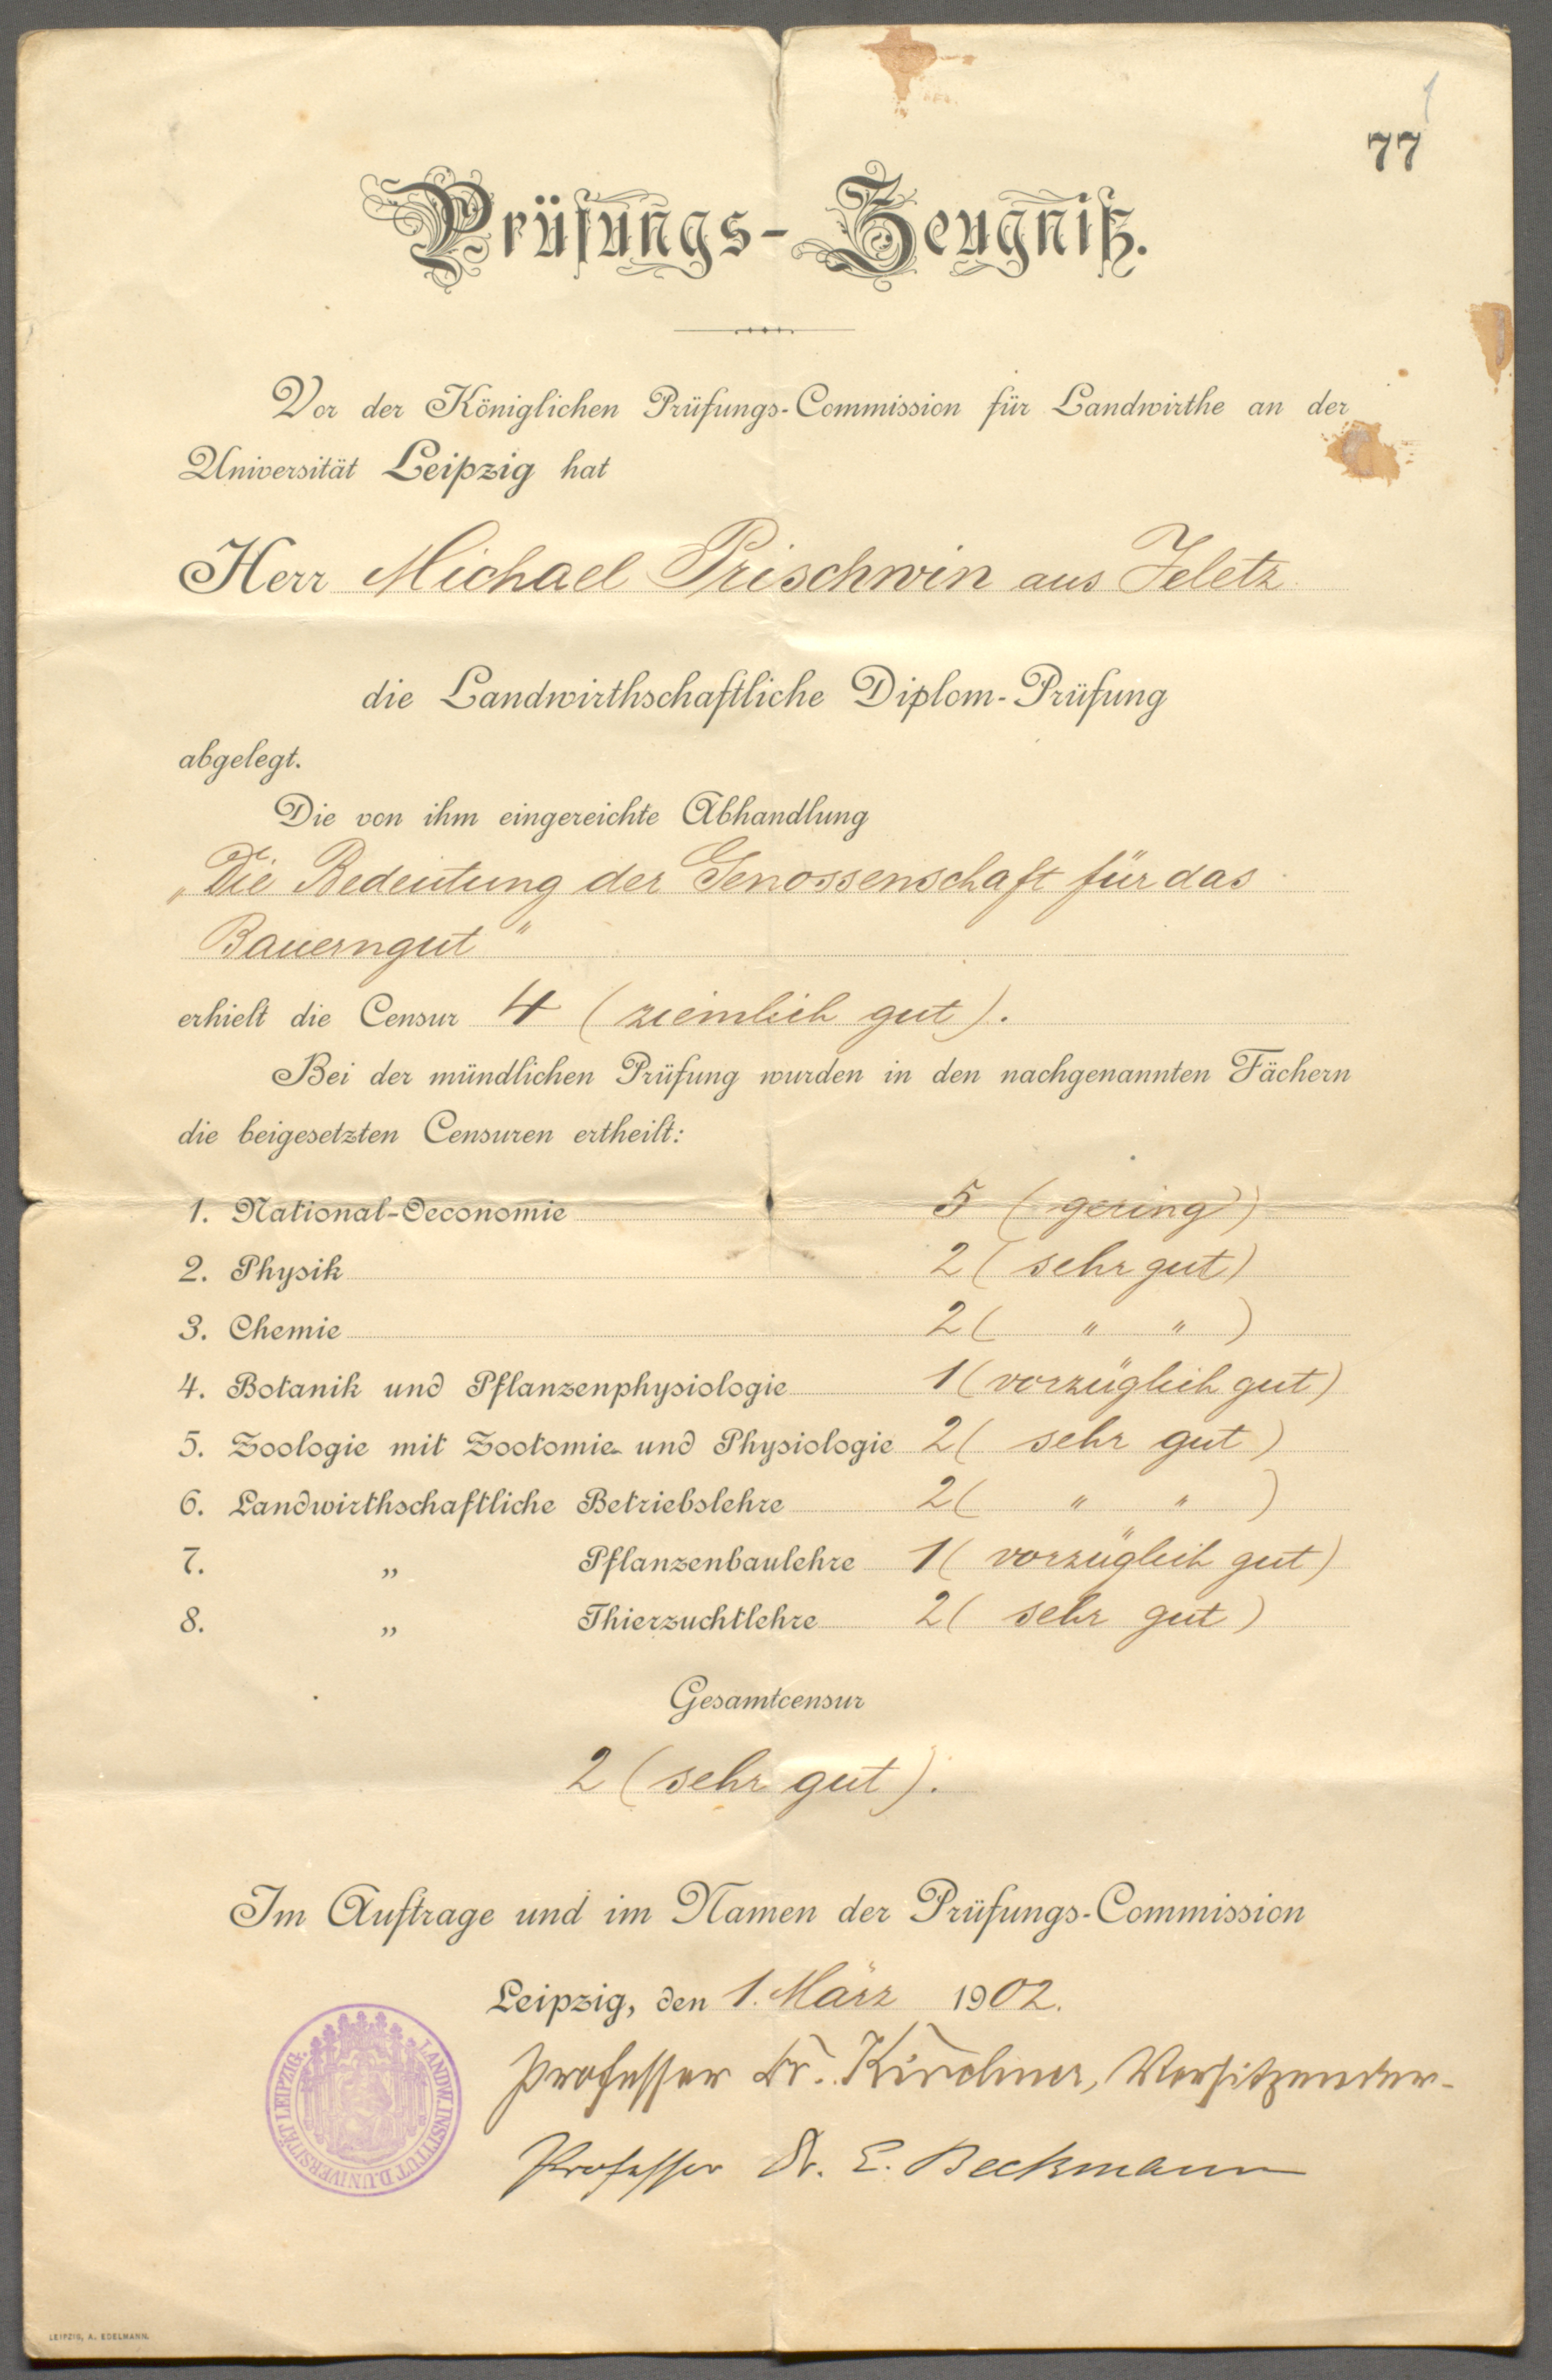 77
Prüfungs-Zeugniß.
Vor der Königlichen Prüfungs-Commission für Landwirthe an der
Universität Leipzig hat
Herr Michael Prischwin aus Jeletz
die Landwirthschaftliche Diplom-Prüfung
abgelegt.
Die von ihm eingereichte Abhandlung
„Die Bedeutung der Genossenschaft für das
Bauerngut"
erhielt die Censur 4 (ziemlich gut).
Bei der mündlichen Prüfung wurden in den nachgenannten Fächern
die beigesetzten Censuren ertheilt:
1. National-Oeconomie 5 (gering)
2. Physik 2 (sehr gut)
3. Chemie 2 ( " " )
4. Botanik und Pflanzenphysiologie 1 (vorzüglich gut)
5. Zoologie mit Zootomie und Physiologie 2 (sehr gut)
6. Landwirthschaftliche Betriebslehre 2 ( " " )
7. „ Pflanzenbaulehre 1 (vorzüglich gut)
8. „ Thierzuchtlehre 2 (sehr gut)
Gesamtcensur
2 (sehr gut).
Im Auftrage und im Namen der Prüfungs-Commission
Leipzig, den 1. März 1902.
Professor Dr. Kirchner, Vorsitzender.
Professor Dr. E. Beckmann
LANDW. INSTITUT D. UNIVERSITÄT LEIPZIG.
LEIPZIG, A. EDELMANN.